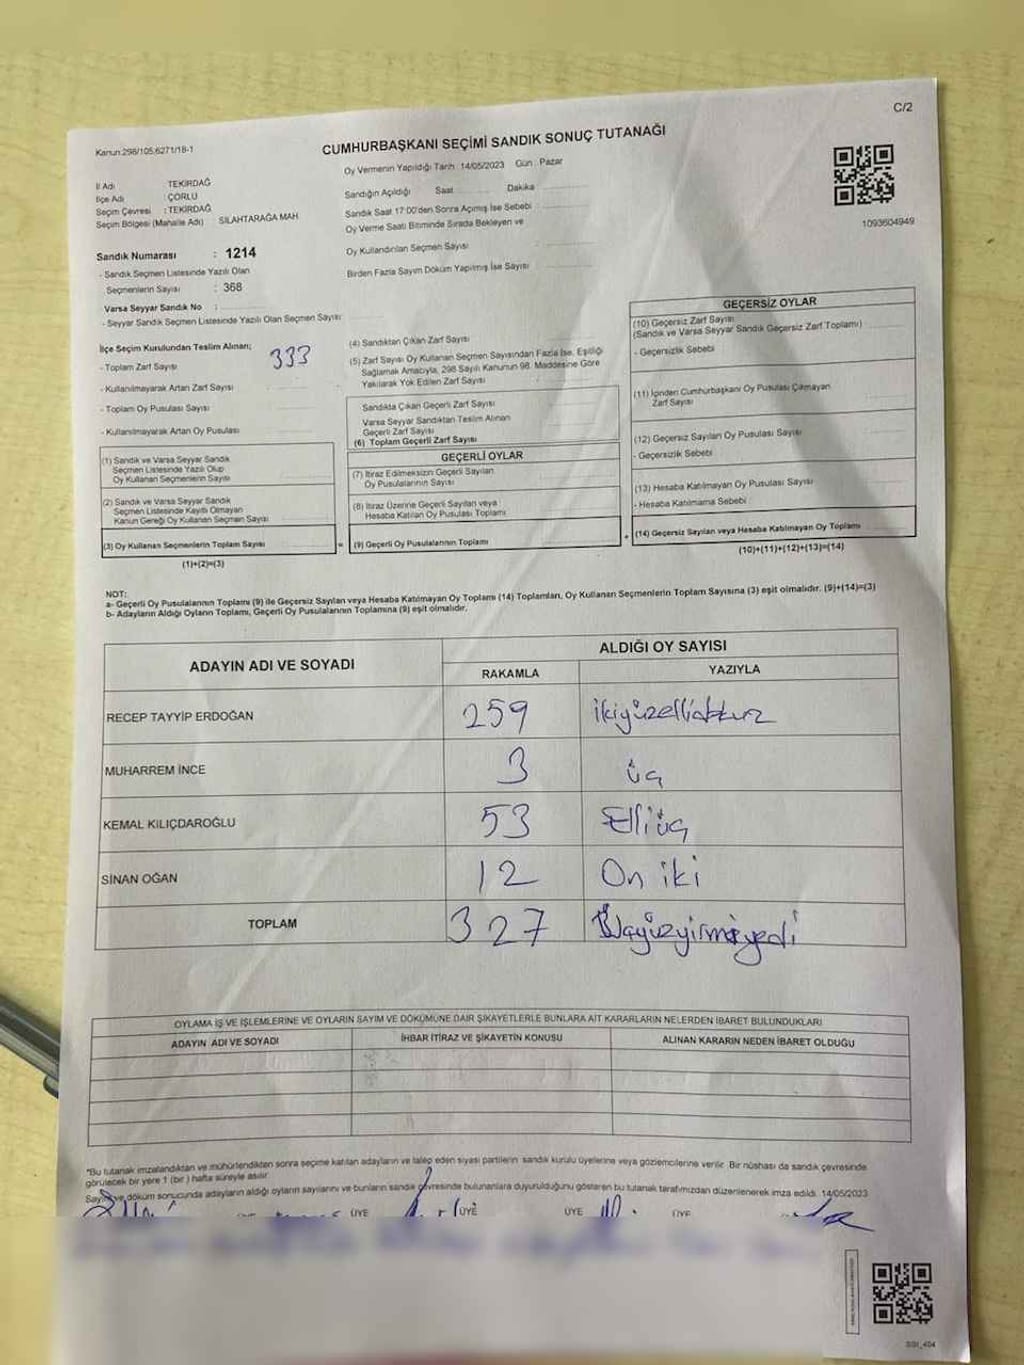 C/2
Kanun:298/105;6271/18-1
CUMHURBAŞKANI SEÇİMİ SANDIK SONUÇ TUTANAĞI
Oy Vermenin Yapıldığı Tarih : 14/05/2023 Gün : Pazar
İl Adı : TEKİRDAĞ
İlçe Adı : ÇORLU
Seçim Çevresi : TEKİRDAĞ
Seçim Bölgesi (Mahalle Adı) : SILAHTARAĞA MAH
Sandığın Açıldığı Saat Dakika
Sandık Saat 17:00'den Sonra Açımış İse Sebebi :
Oy Verme Saati Bitiminde Sırada Bekleyen ve
Oy Kullandırılan Seçmen Sayısı :
Birden Fazla Sayım Döküm Yapılmış İse Sayısı :
1093604949
Sandık Numarası : 1214
- Sandık Seçmen Listesinde Yazılı Olan
Seçmenlerin Sayısı : 368
Varsa Seyyar Sandık No :
- Seyyar Sandık Seçmen Listesinde Yazılı Olan Seçmen Sayısı:
İlçe Seçim Kurulundan Teslim Alınan;
- Toplam Zarf Sayısı 333
- Kullanılmayarak Artan Zarf Sayısı
- Toplam Oy Pusulası Sayısı
- Kullanılmayarak Artan Oy Pusulası
(1) Sandık ve Varsa Seyyar Sandık
Seçmen Listesinde Yazılı Olup
Oy Kullanan Seçmenlerin Sayısı
(2) Sandık ve Varsa Seyyar Sandık
Seçmen Listesinde Kayıtlı Olmayan
Kanun Gereği Oy Kullanan Seçmen Sayısı
(3) Oy Kullanan Seçmenlerin Toplam Sayısı
(1)+(2)=(3)
=
(4) Sandıktan Çıkan Zarf Sayısı
(5) Zarf Sayısı Oy Kullanan Seçmen Sayısından Fazla İse, Eşitliği
Sağlamak Amacıyla, 298 Sayılı Kanunun 98. Maddesine Göre
Yakılarak Yok Edilen Zarf Sayısı :
Sandıkta Çıkan Geçerli Zarf Sayısı
Varsa Seyyar Sandıktan Teslim Alınan
Geçerli Zarf Sayısı
(6) Toplam Geçerli Zarf Sayısı
GEÇERLİ OYLAR
(7) İtiraz Edilmeksizin Geçerli Sayılan
Oy Pusulalarının Sayısı
(8) İtiraz Üzerine Geçerli Sayılan veya
Hesaba Katılan Oy Pusulası Toplamı
(9) Geçerli Oy Pusulalarının Toplamı
+
GEÇERSİZ OYLAR
(10) Geçersiz Zarf Sayısı
(Sandık ve Varsa Seyyar Sandık Geçersiz Zarf Toplamı)
- Geçersizlik Sebebi
(11) İçinden Cumhurbaşkanı Oy Pusulası Çıkmayan
Zarf Sayısı
(12) Geçersiz Sayılan Oy Pusulası Sayısı
- Geçersizlik Sebebi
(13) Hesaba Katılmayan Oy Pusulası Sayısı
- Hesaba Katılmama Sebebi :
(14) Geçersiz Sayılan veya Hesaba Katılmayan Oy Toplamı
(10)+(11)+(12)+(13)=(14)
NOT:
a- Geçerli Oy Pusulalarının Toplamı (9) ile Geçersiz Sayılan veya Hesaba Katılmayan Oy Toplamı (14) Toplamları, Oy Kullanan Seçmenlerin Toplam Sayısına (3) eşit olmalıdır. (9)+(14)=(3)
b- Adayların Aldığı Oyların Toplamı, Geçerli Oy Pusulalarının Toplamına (9) eşit olmalıdır.
ADAYIN ADI VE SOYADI ALDIĞI OY SAYISI
RAKAMLA YAZIYLA
RECEP TAYYİP ERDOĞAN 259 ikiyüzellidokuz
MUHARREM İNCE 3 üç
KEMAL KILIÇDAROĞLU 53 Elliüç
SİNAN OĞAN 12 On iki
TOPLAM 327 Üçyüzyirmiyedi
OYLAMA İŞ VE İŞLEMLERİNE VE OYLARIN SAYIM VE DÖKÜMÜNE DAİR ŞİKAYETLERLE BUNLARA AİT KARARLARIN NELERDEN İBARET BULUNDUKLARI
ADAYIN ADI VE SOYADI İHBAR İTİRAZ VE ŞİKAYETİN KONUSU ALINAN KARARIN NEDEN İBARET OLDUĞU
*Bu tutanak imzalandıktan ve mühürlendikten sonra seçime katılan adayların ve talep eden siyasi partilerin sandık kurulu üyelerine veya gözlemcilerine verilir. Bir nüshası da sandık çevresinde
görülecek bir yere 1 (bir) hafta süreyle asılır.
Sayım ve döküm sonucunda adayların aldığı oyların sayılarını ve bunların sandık çevresinde bulunanlara duyurulduğunu gösteren bu tutanak tarafımızdan düzenlenerek imza edildi. 14/05/2023
ÜYE ÜYE ÜYE ÜYE ÜYE
SSI_404